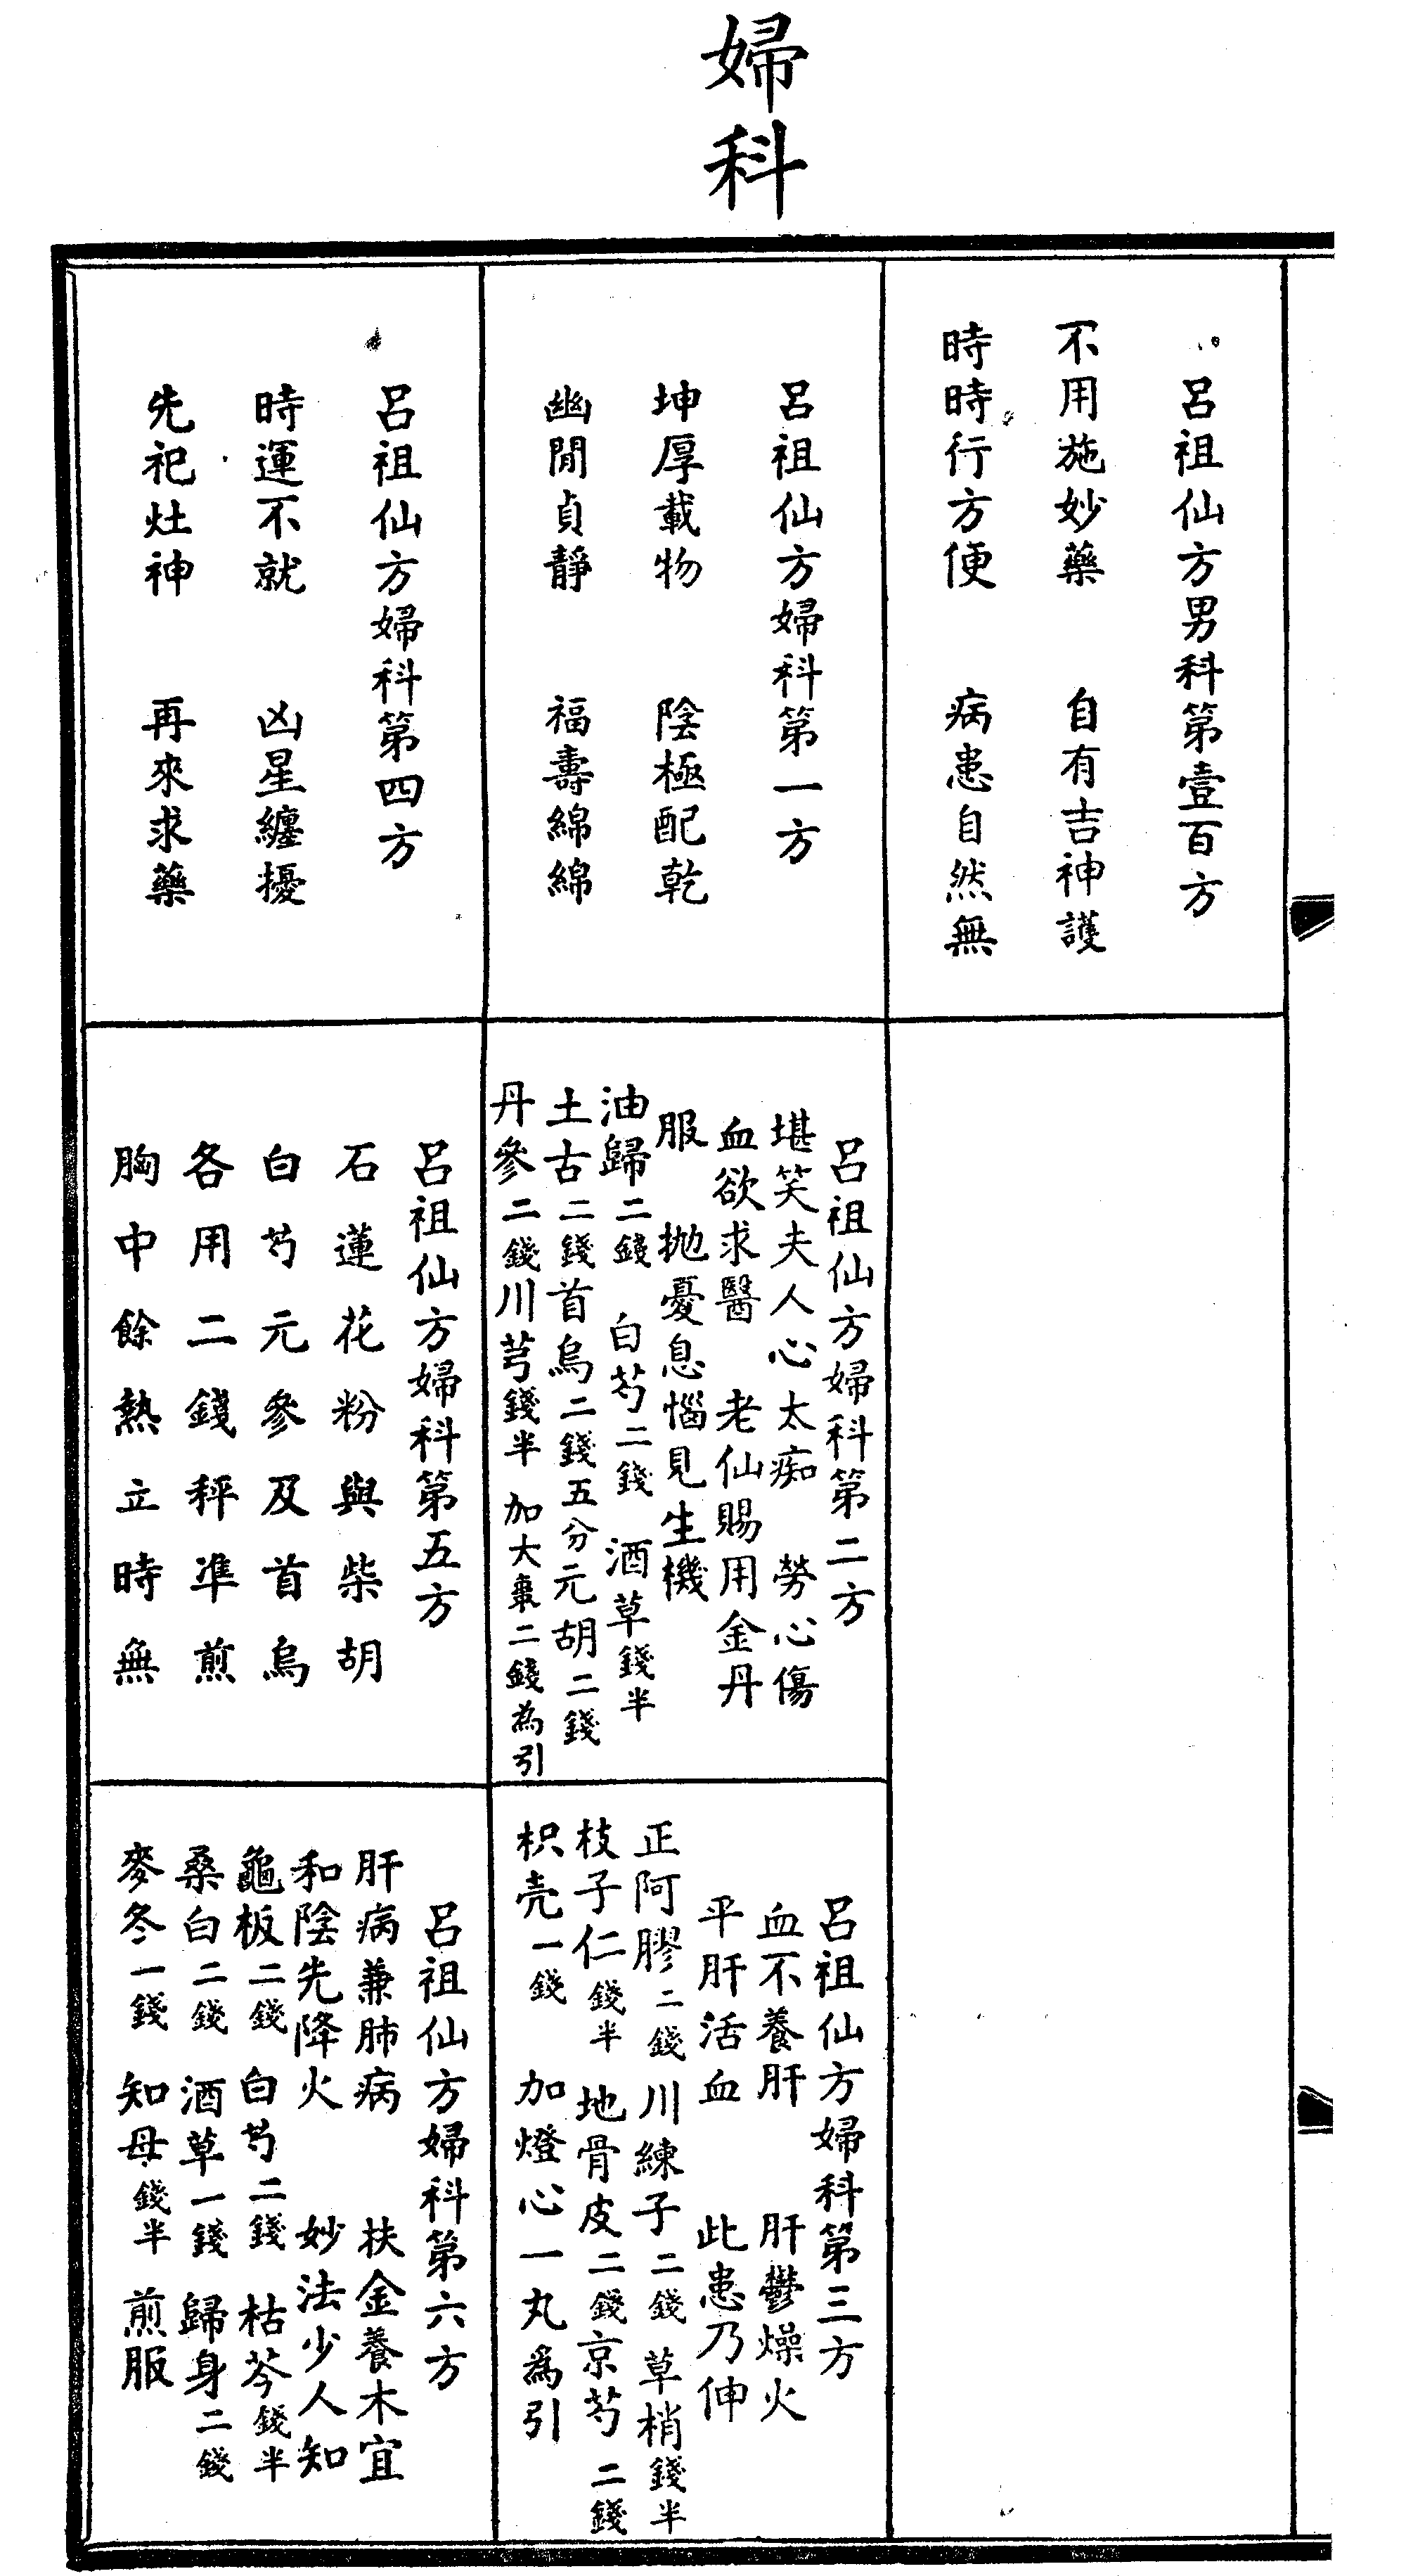 婦科
呂祖仙方男科第壹百方
不用施妙藥　自有吉神護
時時行方便　病患自然無
呂祖仙方婦科第一方
坤厚載物　陰極配乾
幽閒貞靜　福壽綿綿
呂祖仙方婦科第二方
堪笑夫人心太痴　勞心傷
血欲求醫　老仙賜用金丹
服　拋憂息惱見生機
油歸二錢　白芍二錢　酒草錢半
土古二錢首烏二錢五分元胡二錢
丹參二錢川芎錢半　加大棗二錢為引
呂祖仙方婦科第三方
血不養肝　肝鬱燥火
平肝活血　此患乃伸
正阿膠二錢川練子二錢　草梢錢半
枝子仁錢半　地骨皮二錢京芍二錢
枳壳一錢　加燈心一丸爲引
呂祖仙方婦科第四方
時運不就　凶星纏擾
先祀灶神　再來求藥
呂祖仙方婦科第五方
石蓮花粉與柴胡
白芍元參及首烏
各用二錢秤準煎
胸中餘熱立時無
呂祖仙方婦科第六方
肝病兼肺病　扶金養木宜
和陰先降火　妙法少人知
龜板二錢　白芍二錢　枯芩錢半
桑白二錢　酒草一錢　歸身二錢
麥冬一錢　知母錢半　煎服